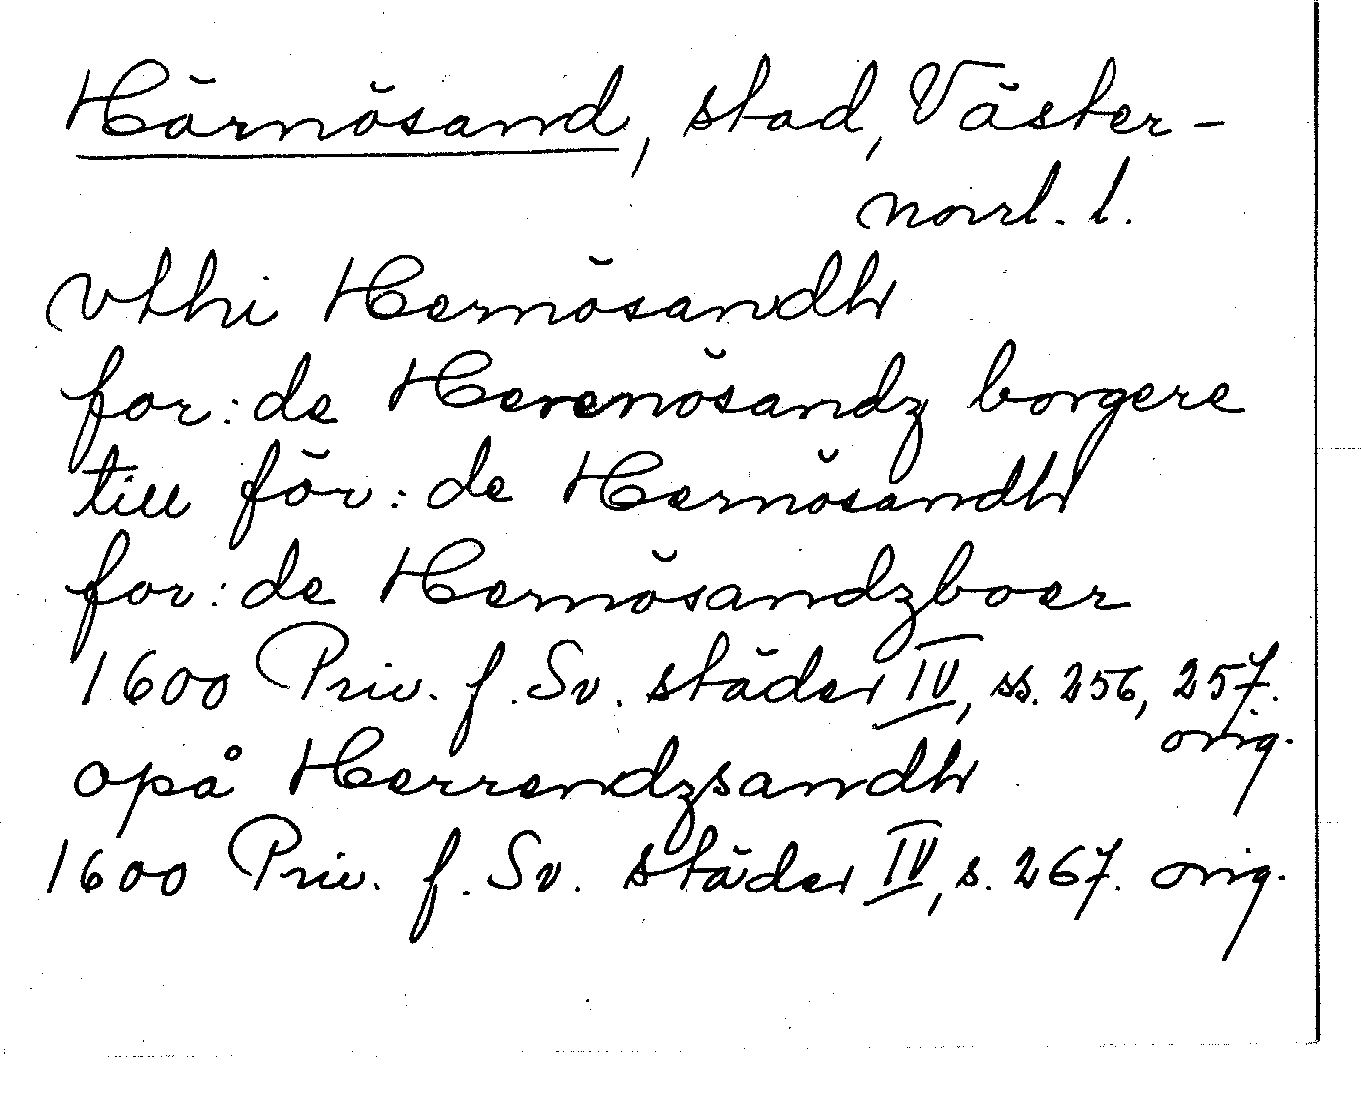 Härnösand, stad, Väster-
norrl. l.
vthi Hernösandh
for:de Herenösandz borgere
till för:de Hernösandh
for:de Hernösandzboer
1600 Priv. f. Sv. städer IV, ss. 256, 257.
orig.
opå Herrendzsandh
1600 Priv. f. Sv. städer IV, s. 267. orig.